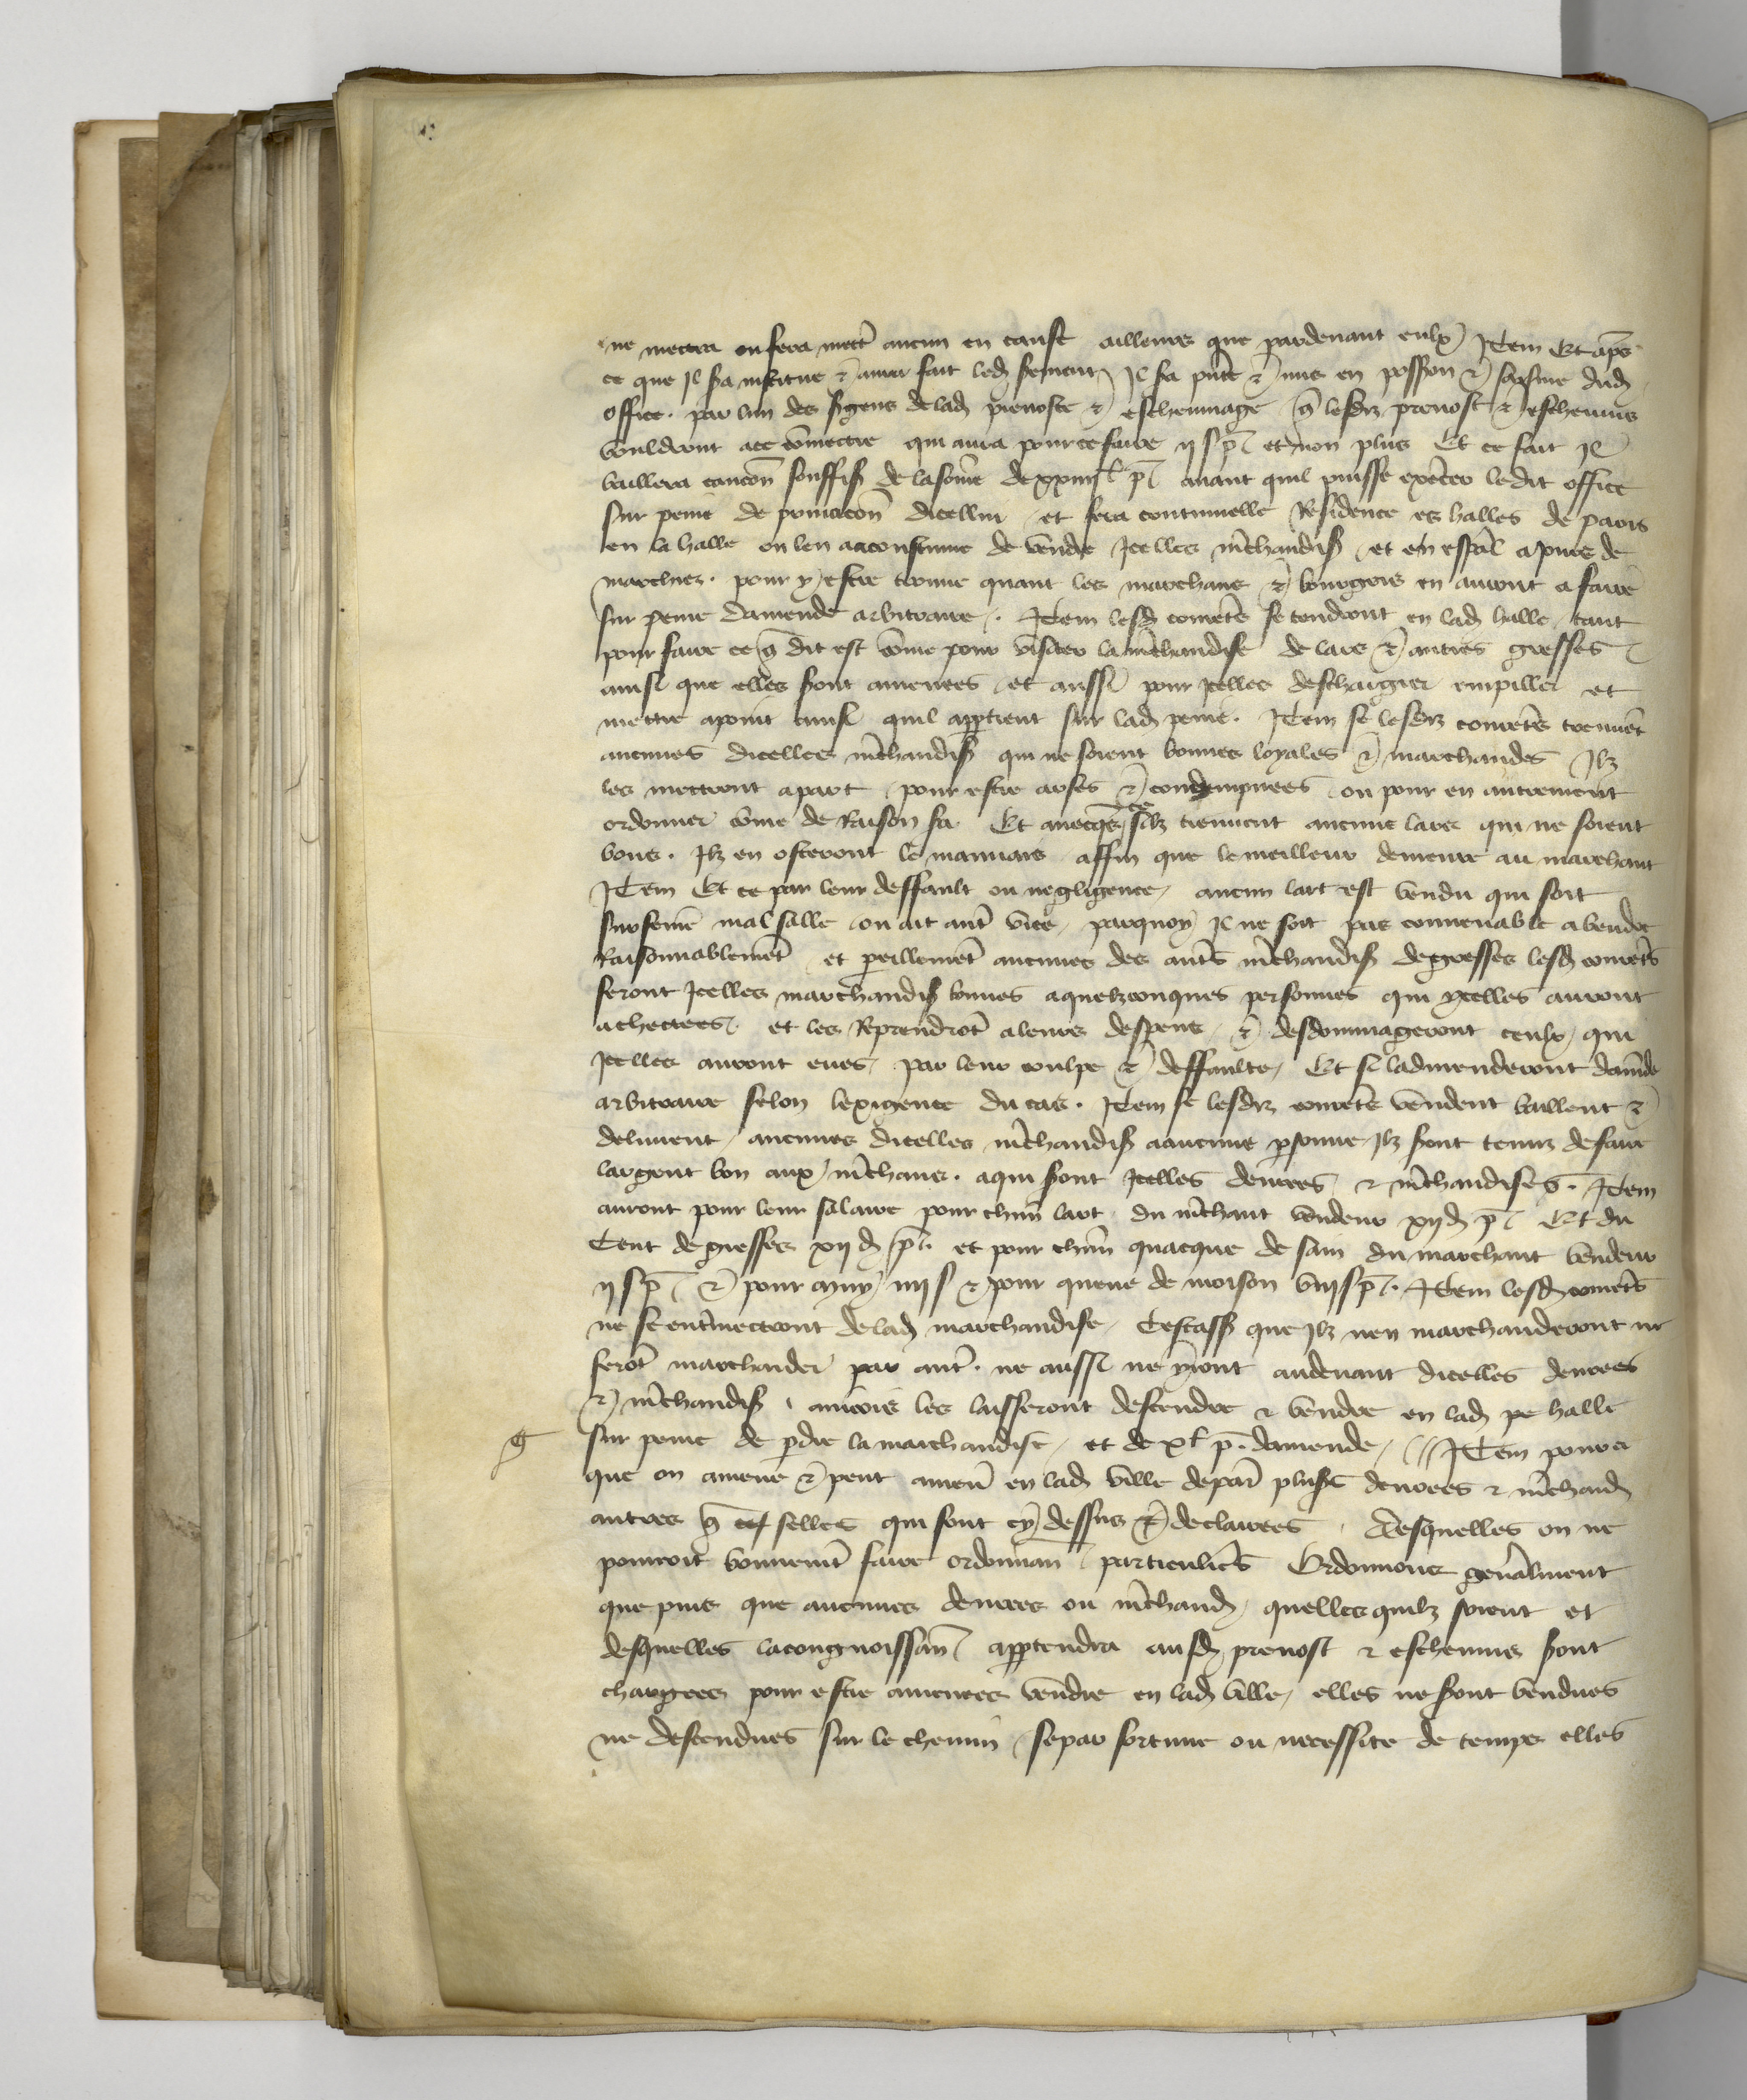 ne mectra ou fera mectr̄ aucun en cause ailleurs que pardeuant eulx Item Et apͤs
ce que Il sͣa institue & aura fait led̄ serment Il sͣa pn̄te & mis en possͦion & saisine dud̄
office. par lun des sͬgens delad̄ preuoste & escheuinage q̄ lesdiz preuost & escheuins
vouldront ace cōmectre qui aura pource faire ij s p̄ et non plus Et ce fait Il
baillera caucōn souffis̄ de lasōme de xxiiij l p̄ auant quil puisse exēcer ledit office
sur peine de priuacōn dicellui et fera continuelle Residence es halles de paris
en la halle ou len aacoustume de vendr̄ Icelles mͬchandis̄ et en esp̄al a Iours de
marchies. pour y estre trouue quant les marchans & bourgois en auront a faire
sur peine damende arbitraire. Item lesd̄ courets̄ se tendront en lad̄ halle tant
pour faire ce q̄ dit est cōme pour visiter lamͬchandise de lars & autres gresses
ainsi que elles sͦont amenees et aussi pour Icelles deschargier empiller et
mettre apoint ainsi quil appͬtient sur lad̄ peine. Item se lesdiz courets̄ treuuēt
aucunes dicelles mͬchandis̄ qui ne soient bonnes loyales & marchandes Ilz
les mectront apart pour estre arses & condempnees ou pour en autrement
ordonner cōme de Raison sͣa Et auecqͤs ce silz treuuent aucuns lars qui ne soient
bons. Ilz en osteront le mauuais affin que le meilleur demeure au marchant
Item Et ce par leur deffault ou negligence aucun lart est vendu qui soit
sursemē mal salle ou ait autr̄ vice parquoy Il ne soit pas conuenable a vendre
Raisonnablemēt et pareillemēt aucunes des autr̄s mͬchandis̄ degresses lesd̄ courets̄
feront Icelles marchandis̄ bonnes aquelzconques personnes qui ycelles auront
achectees et les Reprendrōt aleurs despens & desdommageront ceulx qui
Icelles auront eues par leur coulpe & deffaulte Et si ladmenderont damēde
arbitraire selon lexigence du cas. Item se lesdiz courets̄ vendent baillent &
deliurent aucunes dicelles mͬchandis̄ aaucune pͬsonne Ilz sͦont tenuz de faire
largent bon aux mͬchans. aqui sͦont Icelles denrees & mͬchandises. Item
auront pour leur salaire pour chūn lart du mͬchant vendeur xij d̄ p̄ Et du
Cent de gresses xij d̄ p̄. et pour chūn quacque de sain du marchant vendeur
ij s p̄ & pour muy iiij s & pour queue de moison viij s p̄. Item lesd̄ courets̄
ne se entͬmectront delad̄ marchandise Cestass̄ que Ilz nen marchanderont ne
ferōt marchander par autr̄. ne aussi ne yront audeuant dicelles denrees
& mͬchandis̄ aincois les laisseront descendre & vendre en lad̄ pe halle
sur peine de pͬdre la marchandise et de x l p̄. damende Item pource
que on amene & peut amen̄ en lad̄ ville depar̄ plusͬs denrees & mͬchand̄
autres q̄ celles qui sont cy dessus & declairees Desquelles on ne
pourroit bonnemēt faire ordonnan̄ particulieͬs Ordonnons genͤralment
que puis que aucunes denrees ou mͬchand̄ quelles quilz soient et
desquelles lacongnoissan̄ appͬtendra ausd̄ preuost & escheuins sͦont
chargees pour estre amenees vendre en lad̄ ville elles ne sͦont vendues
ne descendues sur le chemin se par fortune ou necessite de temps elles